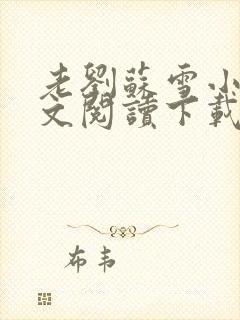 老劉蘇雪小
文閱讀下載
布韦